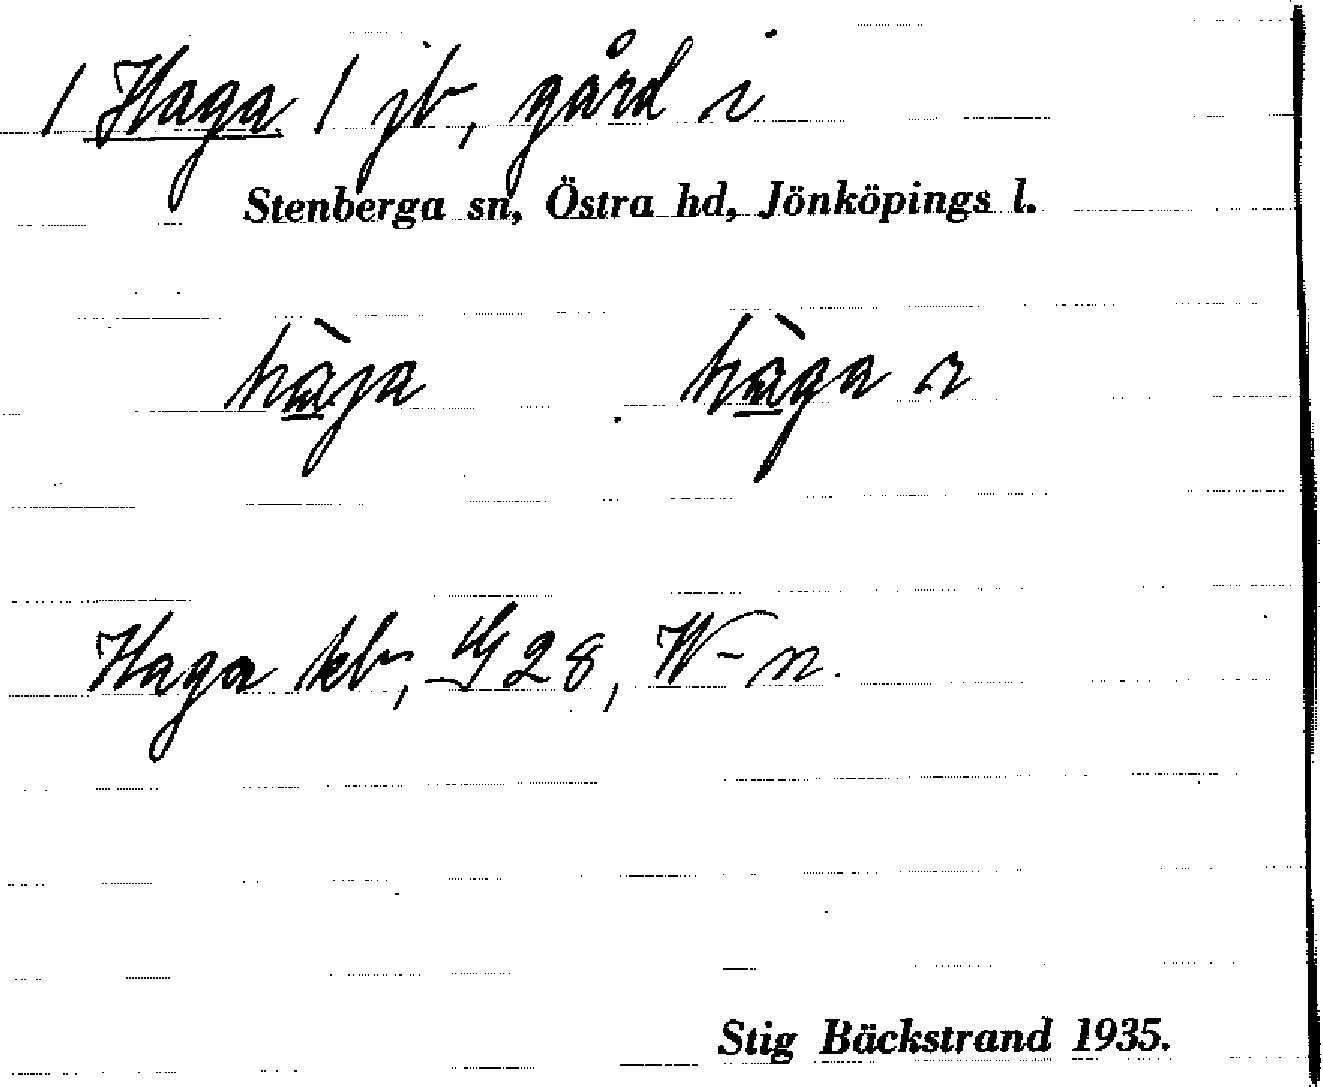 / Haga / jb, gård i
Stenberga sn, Östra hd, Jönköpings l.
hàga hàga r
Haga kb, G 28, W-n.
Stig Bäckstrand 1935.